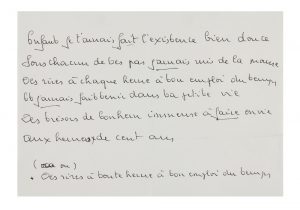 Enfant je t'aurais fait l'existence bien douce
Sous chacun de tes pas jamais mis de la mousse
Des rires à chaque heure à bon emploi du temps
Et jamais fait tenir dans ta petite vie
Des trésors de bonheur immense à faire envie
aux heureux de cent ans
( ou )
. Des rires à toute heure à bon emploi du temps